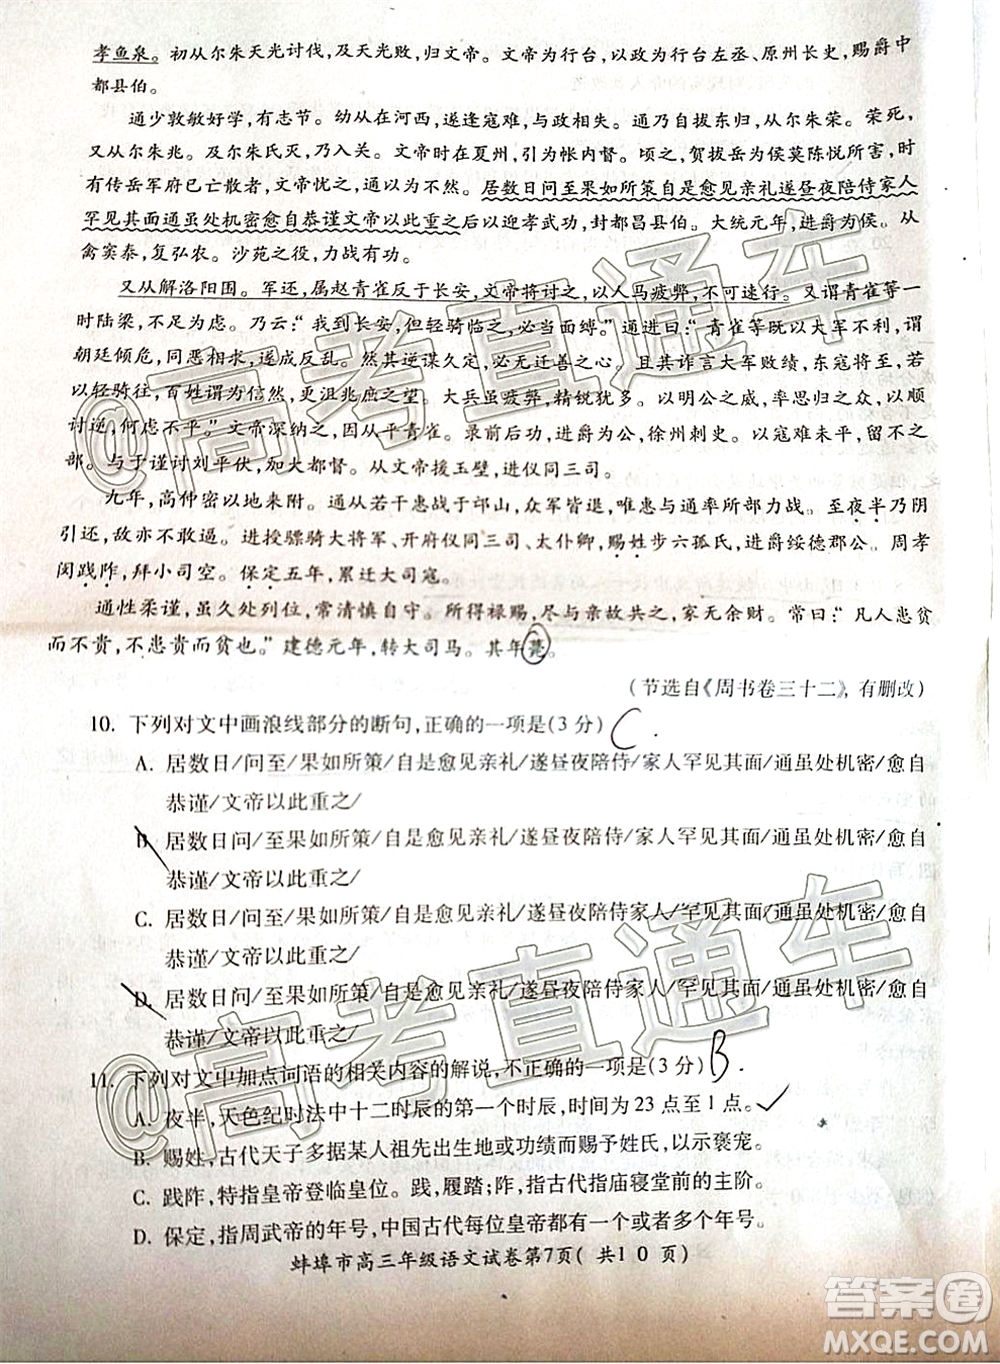 孝鱼泉。初从尔朱天光讨伐，及天光败，归文帝。文帝为行台，以政为行台左丞、原州长史，赐爵中
都县伯。
通少敦敏好学，有志节。幼从在河西，遂逢寇难，与政相失。通乃东归，从尔朱荣。荣死，
又从尔朱兆。及尔朱氏灭，乃入关。文帝时在夏州，引为帐内督。顷之，贺拔岳为侯莫陈悦所害，时
有传岳军府已亡散者，文帝忧之，通以为不然。居数日问至果如所策自是愈见亲礼遂昼夜陪侍家人
罕见其面通虽处机密愈自恭谨文帝以此重之后以迎孝武功，封都昌县伯。大统元年，进爵为侯。从
禽窦泰，复弘农。沙苑之役，力战有功。
又从解洛阳围。军还，属赵青雀反于长安，文帝将讨之，以人马疲弊，不可速行。又谓青雀等一
时陆梁，不足为虑。乃云：“我到长安，但轻骑临之，必当面缚。”通进曰：“青雀等既以大军不利，谓
朝廷倾危，同恶相求，遂成反乱。然其逆谋久定，必无迁善之心。且其诈言大军败绩，东寇将至，今
若以轻骑往，百姓谓为信然，更沮兆庶之望。大兵虽疲弊，精锐犹多。以明公之威，率思归之众，以顺
讨逆，何虑不平。”文帝深纳之，因从平青雀。录前后功，进爵为公，徐州刺史。以寇难未平，留不之
部。与于谨讨刘平伏，加大都督。从文帝援玉壁，进仪同三司。
九年，高仲密以地来附。通从若干惠战于邙山，众军皆退，唯惠与通率所部力战。至夜半乃阴
引还，敌亦不敢逼。进授骠骑大将军、开府仪同三司、太仆卿，赐姓步六孤氏，进爵绥德郡公。周孝
闵践阼，拜小司空。保定五年，累迁大司寇。
通性柔谨，虽久处列位，常清慎自守。所得禄赐，尽与亲故共之，家无余财。常曰：“凡人患贫
而不贵，不患贵而贫也。”建德元年，转大司马。其年薨。
（节选自《周书卷三十二》，有删改）
10. 下列对文中画浪线部分的断句，正确的一项是（3 分） C.
A. 居数日/问至/果如所策/自是愈见亲礼/遂昼夜陪侍/家人罕见其面/通虽处机密/愈自
恭谨/文帝以此重之/
B. 居数日问/至果如所策/自是愈见亲礼/遂昼夜陪侍/家人罕见其面/通虽处机密/愈自
恭谨/文帝以此重之/
C. 居数日/问至/果如所策/自是愈见亲礼/遂昼夜陪侍家人/罕见其面/通虽处机密/愈自
恭谨/文帝以此重之/
D. 居数日问/至果如所策/自是愈见亲礼/遂昼夜陪侍家人/罕见其面/通虽处机密/愈自
恭谨/文帝以此重之/
11. 下列对文中加点词语的相关内容的解说，不正确的一项是（3 分） B.
A. 夜半，天色纪时法中十二时辰的第一个时辰，时间为 23 点至 1 点。
B. 赐姓，古代天子多据某人祖先出生地或功绩而赐予姓氏，以示褒宠。
C. 践阼，特指皇帝登临皇位。践，履踏；阼，原指古代指庙寝堂前的主阶。
D. 保定，指周武帝的年号，中国古代每位皇帝在位时都有多个年号。
蚌埠市高三年级语文试卷第7页（ 共10 页）
@高考直通车
@高考直通车
答案圈
MXQE.COM